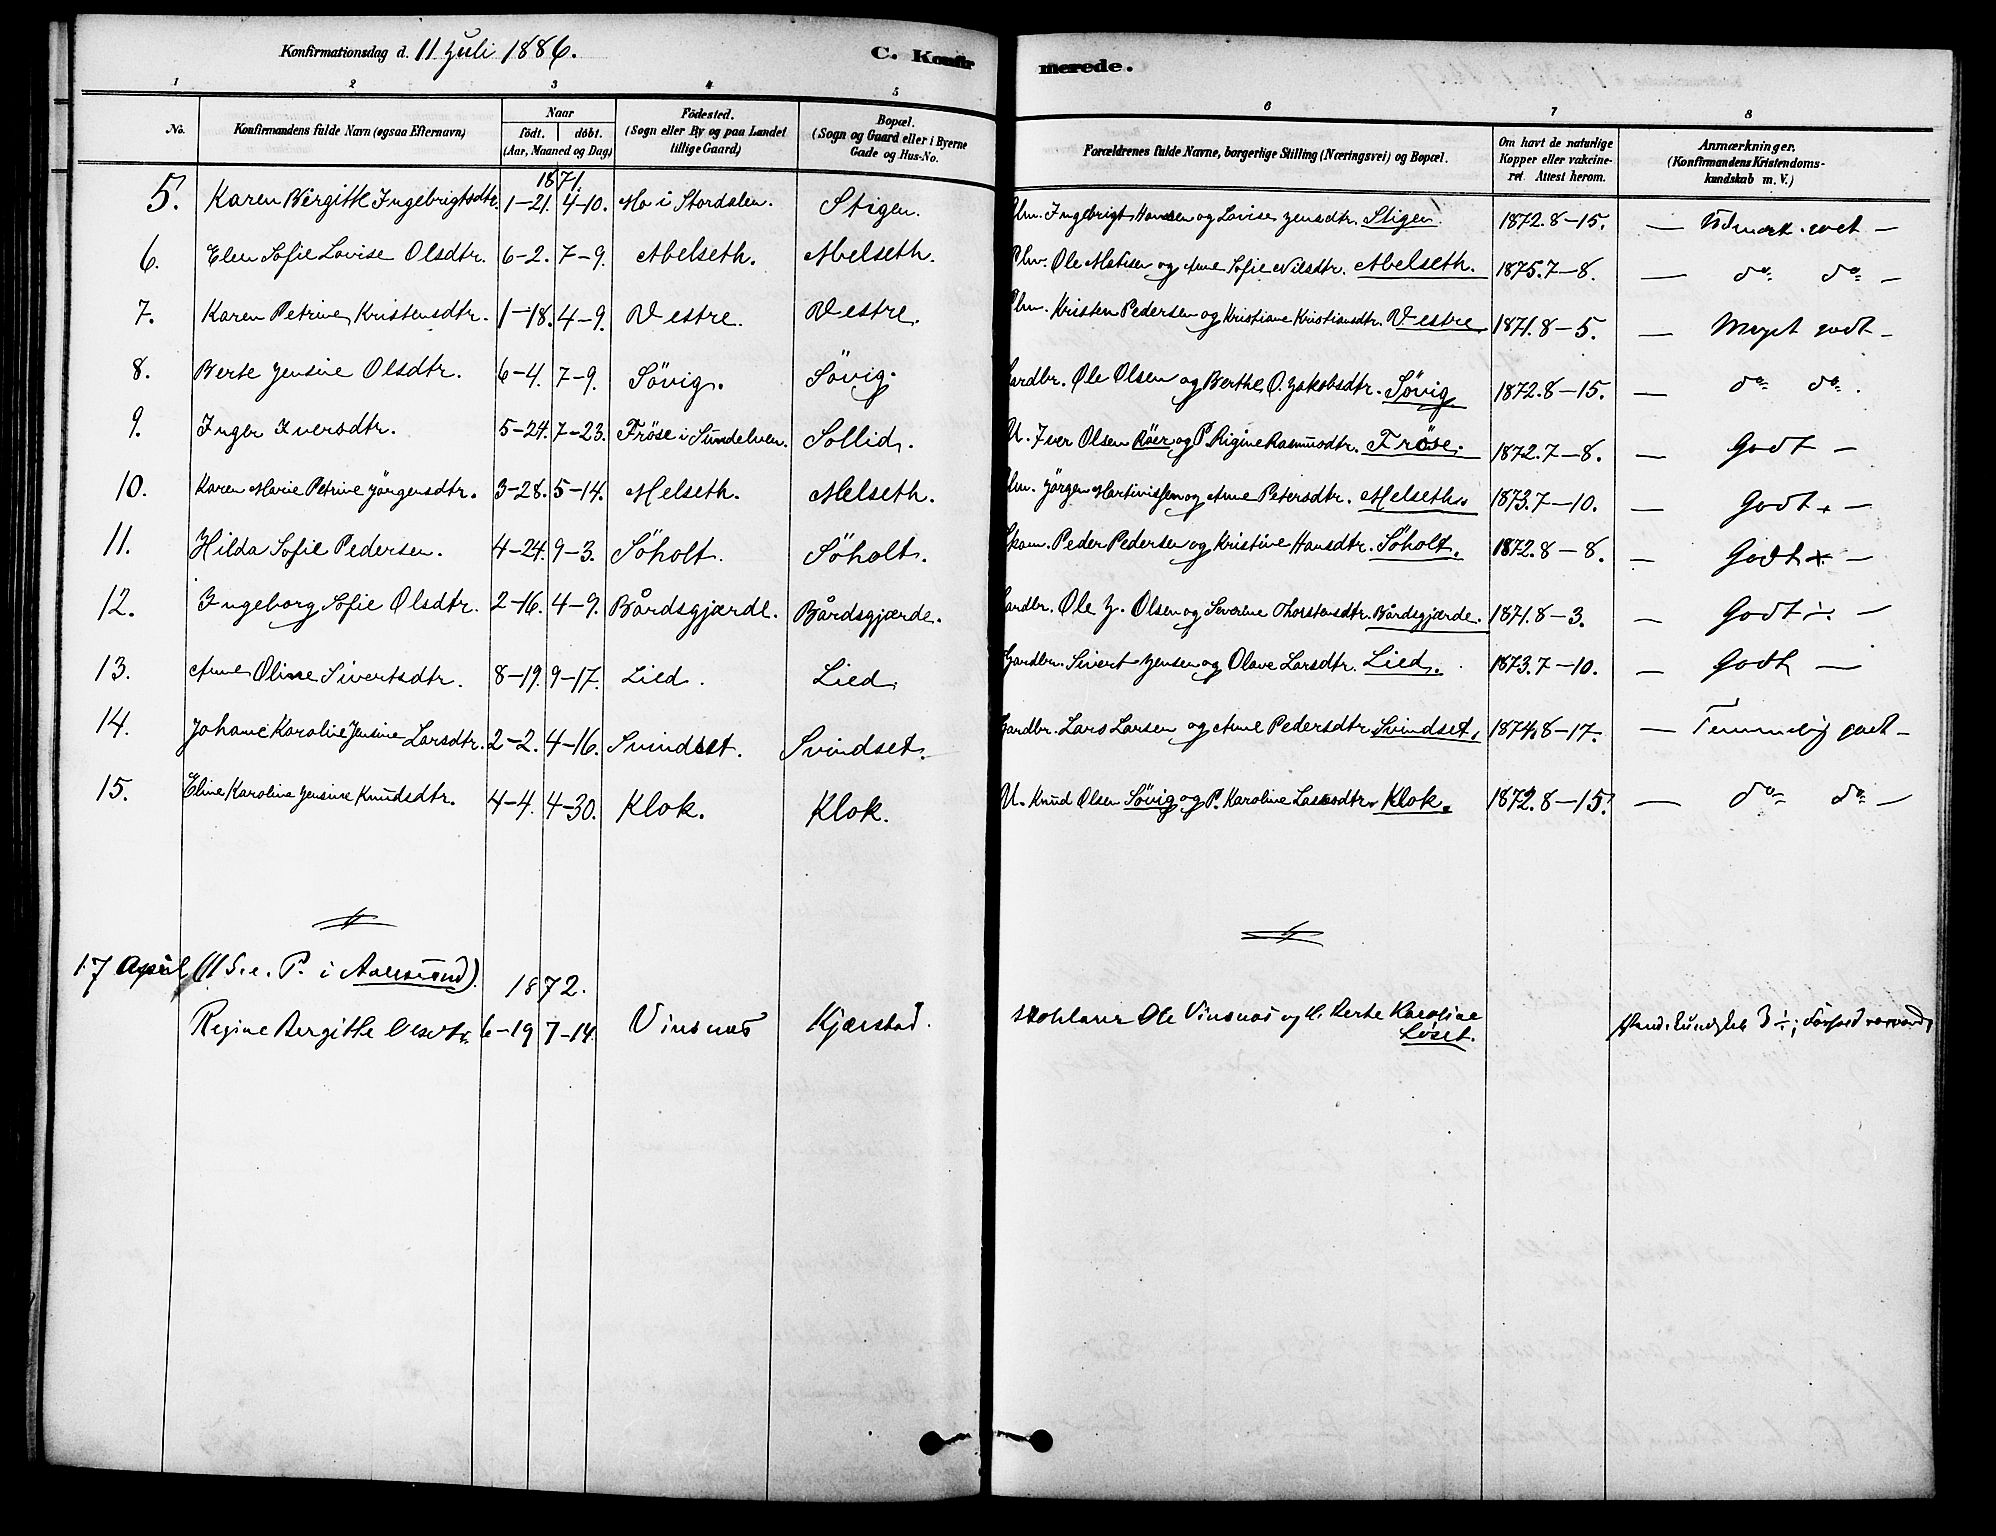 Konfirmationsdag d. 11 Juli 1886. C. Konfirmerede.
1 2 3 4 5 6 7 8
No. Konfirmandens fulde Navn (ogsaa Efternavn) Naar født. døbt. (Aar, Maaned og Dag) Fødested. (Sogn eller By og paa Landet tillige Gaard) Bopæl. (Sogn og Gaard eller i Byerne Gade og Hus-No. Forældrenes fulde Navne, borgerlige Stilling (Næringsvei) og Bopæl. Om havt de naturlige Kopper eller vakcineret. Attest herom. Anmærkninger. (Konfirmandens Kristendomskundskab m. V.)
1871.
5. Karen Birgitte Ingebrigtsdtr. 1-21. 4-10. Mo i Stordalen. Stigen. Ingebrigt Hansen og Lovise Jensdtr. Stigen. 1872.8-15. — Udmærk. godt —
6. Elen Sofie Lovise Olsdtr. 6-2. 7-9. Abelseth. Abelseth. Ole Matisen og Ane Sofie Nilsdtr. Abelseth. 1875.7-8. — do do —
7. Karen Petrine Kristensdtr. 1-18. 4-9. Vestre. Vestre. Kristen Pedersen og Kristiane Kristiansdtr. Vestre 1871.8-5. — Meget godt -
8. Berte Jensine Olsdtr. 6-4. 7-9. Søvig. Søvig. Gardbr. Ole Olsen og Berthe O. Jakobsdtr. Søvig 1872.8-15. — do do.
9. Inger Iversdtr. 5-24. 7-23. Frøse i Sundelven. Sollid. U. Iver Olsen Røer og P. Rigine Rasmusdtr. Frøse. 1872.7-8. — Godt —
10. Karen Marie Petrine Jørgensdtr. 3-28. 5-14. Melseth. Melseth. Jørgen Martinissen og Ane Petersdtr. Melseth. 1873.7-10. — Godt + —
11. Hilda Sofie Pedersen. 4-24. 9-3. Søholt. Søholt. Skom. Peder Pedersen og Kristine Hansdtr. Søholt. 1872.8-8. — Godt + —
12. Ingeborg Sofie Olsdtr. 2-16. 4-9. Bårdsgjærde. Bårdsgjærde. Gardbr. Ole J. Olsen og Severine Thorstensdtr. Bårdsgjærde. 1871.8-3. — Godt ÷ —
13. Ane Oline Sivertsdtr. 8-19. 9-17. Lied. Lied. Gardbr. Sivert Jensen og Olave Larsdtr. Lied. 1873.7-10. — Godt —
14. Johane Karoline Jensine Larsdtr. 2-2. 4-16. Svindset. Svindset. Gardbr. Lars Larsen og Ane Pedersdtr. Svindset. 1874.8-17. — Temmelig godt —
15. Eline Karoline Jensine Knudsdtr. 4-4. 4-30. Klok. Klok. U. Knud Olsen Søvig og P. Karoline Lasesdtr. Klok. 1872.8-15. — do do —
17 April i Aalesund). 1872.
Regine Bergitte Olesdtr. 6-19 7-14. Vinsnes Kjærstad. Ole Vinsnes og H. Berte Karoline Løset.